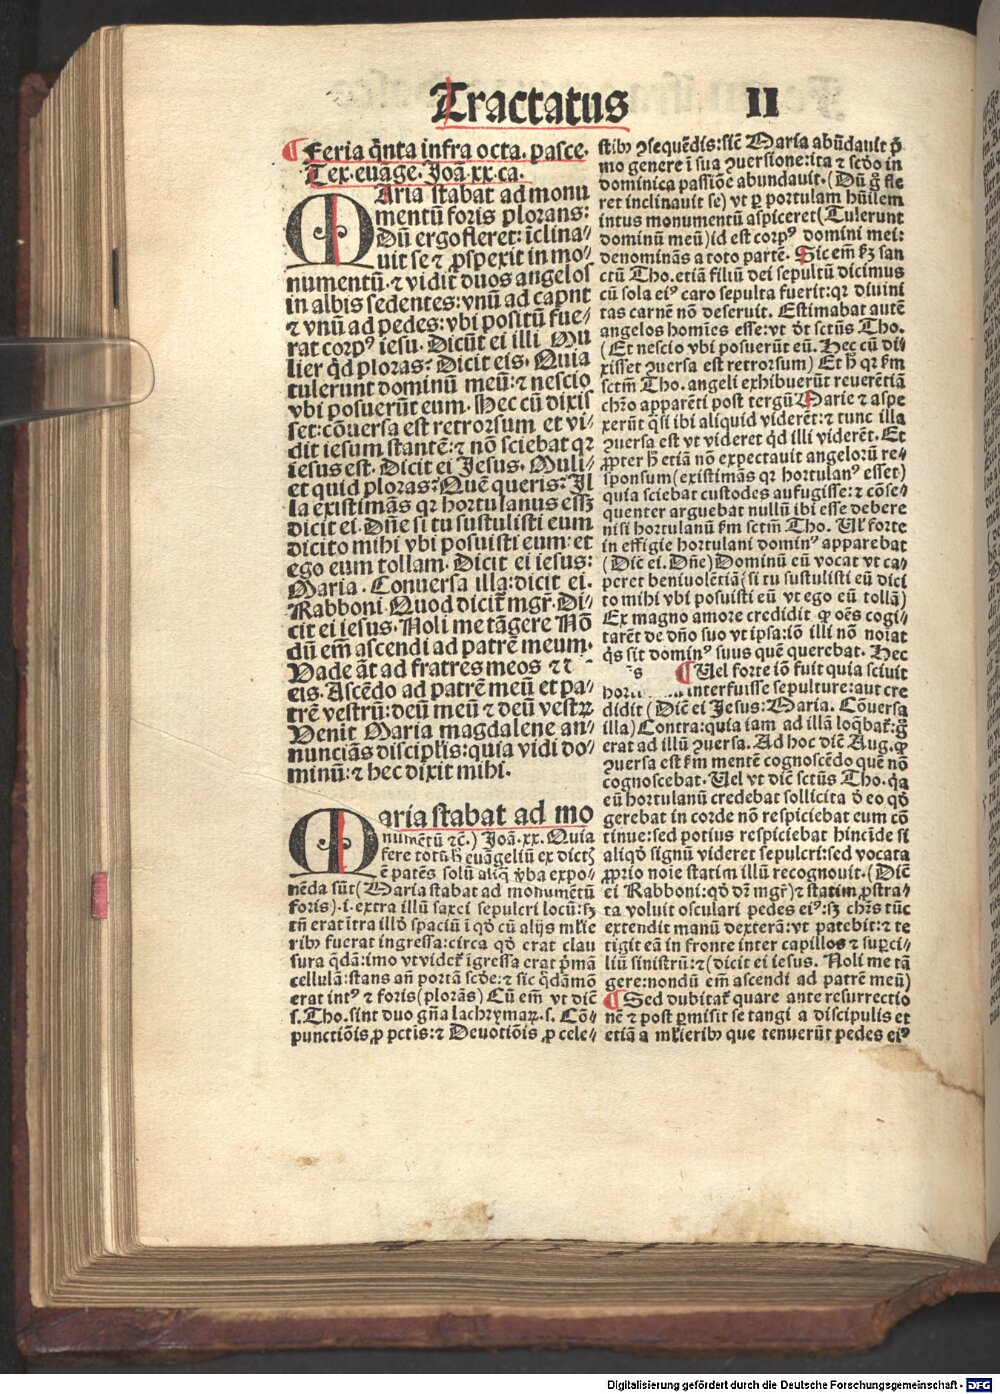 Tractatus II
¶ Feria q̄nta infra octa. pasce.
Tex. euāge. Joā. xx. ca.
MAria stabat ad monu
mentū foris plorans:
Dū ergo fleret: īclina⸗
uit se ⁊ ꝓspexit in mo⸗
numentū. ⁊ vidit duos angelos
in albis sedentes: vnū ad caput
⁊ vnū ad pedes: vbi positū fue⸗
rat corpꝰ iesu. Dicūt ei illi Mu
lier qd ploras? Dicit eis. Quia
tulerunt dominū meū: ⁊ nescio
vbi posuerūt eum. Hec cū dixis
set: cōuersa est retrorsum et vi⸗
dit iesum stantē: ⁊ nō sciebat qr
iesus est. Dicit ei Jesus. Muli⸗
et quid ploras? Quē queris? Il
la existimās qr hortulanus essꝫ
dicit ei. Dn̄e si tu sustulisti eum
dicito mihi vbi posuisti eum: et
ego eum tollam. Dicit ei iesus:
Maria. Conuersa illa: dicit ei.
Rabboni. Quod dicit̄ mgr̄. Di⸗
cit ei iesus. Noli me tāgere Nō
dū em̄ ascendi ad patrē meum.
Vade āt ad fratres meos ⁊
eis. Ascēdo ad patrē meū et pa⸗
trē vestrū: deū meū ⁊ deū vestꝝ
Venit Maria magdalene an⸗
nunciās discipłis: quia vidi do⸗
minū: ⁊ hec dixit mihi.
MAria stabat ad mo
numētū ⁊c̄.) Joā. xx. Quia
fere totū h̄ euāgeliū ex dictꝭ
ē patēs solū aliq̄ v̄ba expo⸗
nēda sūt (Maria stabat ad monumētū
foris) .i. extra illū saxei sepulcri locū: sꝫ
tn̄ erat ītra illd̄ spaciū ī qd̄ cū alijs młie
ribꝫ fuerat ingressa: circa qd̄ erat clau
sura q̄dā: imo vt videt̄ īgressa erat p̄mā
cellulā: stans an̄ portā scd̄e: ⁊ sic q̄dāmō
erat intꝰ ⁊ foris (plorās) Cū em̄ vt diē
s. Tho. sint duo gn̄a lachrymaꝝ. s. Cō⸗
punctiōis ꝓ pctis: ⁊ Deuotiōis ꝓ cele⸗
stibꝫ ꝯsequēdis: sic̄ Maria abūdauit p̄
mo genere ī sua ꝯuersione: ita ⁊ scd̄o in
dominica passiōe abundauit. (Dū g̊ fle
ret inclinauit se) vt ꝑ portulam hūilem
intus monumentū aspiceret (Tulerunt
dominū meū) id est corpꝰ domini mei:
denominās a toto partē. Sic em̄ ẜm san
ctū Tho. etiā filiū dei sepultū dicimus
cū sola eiꝰ caro sepulta fuerit: qr diuini
tas carnē nō deseruit. Estimabat autē
angelos homīes esse: vt dt̄ sctūs Tho.
(Et nescio vbi posuerūt eū. Hec cū di⸗
xisset ꝯuersa est retrorsum) Et h̄ qr ẜm
sctm̄ Tho. angeli exhibuerūt reuerētiā
chr̄o apparēti post tergū Marie ⁊ aspe
xerūt q̄si ibi aliquid viderēt: ⁊ tunc illa
ꝯuersa est vt videret qd̄ illi viderēt. Et
ꝓpter h̄ etiā nō expectauit angelorū re⸗
sponsum (existimās qr hortulanꝰ esset)
quia sciebat custodes aufugisse: ⁊ cōse⸗
quenter arguebat nullū ibi esse debere
nisi hortulanū ẜm sctm̄ Tho. Ul̄ forte
in effigie hortulani dominꝰ apparebat
(Dic̄ ei. Dn̄e) Dominū eū vocat vt ca⸗
peret beniuolētiā (si tu sustulisti eū dici
to mihi vbi posuisti eū vt ego eū tollā)
Ex magno amore credidit ꝙ oēs cogi
tarēt de dn̄o suo vt ipsa: iō illi nō noīat
q̄s sit dominꝰ suus quē querebat. Hec
s ¶ Uel forte iō fuit quia sciuit
interfuisse sepulture: aut cre
didit (Dic̄ ei Jesus: Maria. Cōuersa
illa) Contra: quia iam ad illā loq̄bat̄: g̊
erat ad illū ꝯuersa. Ad hoc dic̄ Aug. ꝙ
ꝯuersa est ẜm mentē cognoscēdo quē nō
cognoscebat. Uel vt dic̄ sctūs Tho. q̄a
eū hortulanū credebat sollicita d̄ eo qd̄
gerebat in corde nō respiciebat eum cō
tinue: sed potius respiciebat hincīde si
aliqd̄ signū videret sepulcri: sed vocata
ꝓprio noīe statim illū recognouit. (Dic̄
ei Rabboni: qd̄ dr̄ mgr̄) ⁊ statim ꝓstra⸗
ta voluit osculari pedes eiꝰ: sꝫ chr̄s tūc
extendit manū dexterā: vt patebit: ⁊ te
tigit eā in fronte inter capillos ⁊ suꝑci⸗
liū sinistrū: ⁊ (dicit ei iesus. Noli me tā
gere: nondū em̄ ascendi ad patrē meū)
¶ Sed dubitat̄ quare ante resurrectio
nē ⁊ post ꝑmisit se tangi a discipulis et
etiā a młieribꝫ que tenuerūt pedes eiꝰ
Digitalisierung gefördert durch die Deutsche Forschungsgemeinschaft - DFG